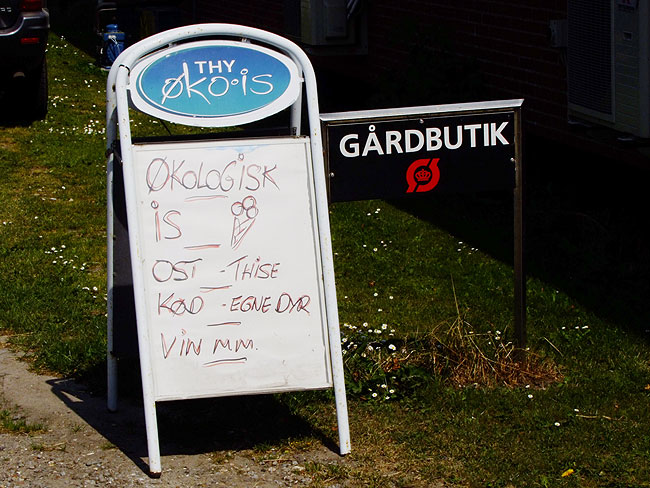 THY
økO·is
ØKOLOGISK
IS
OST - THISE
KØD - EGNE DYR
VIN MM.
GÅRDBUTIK